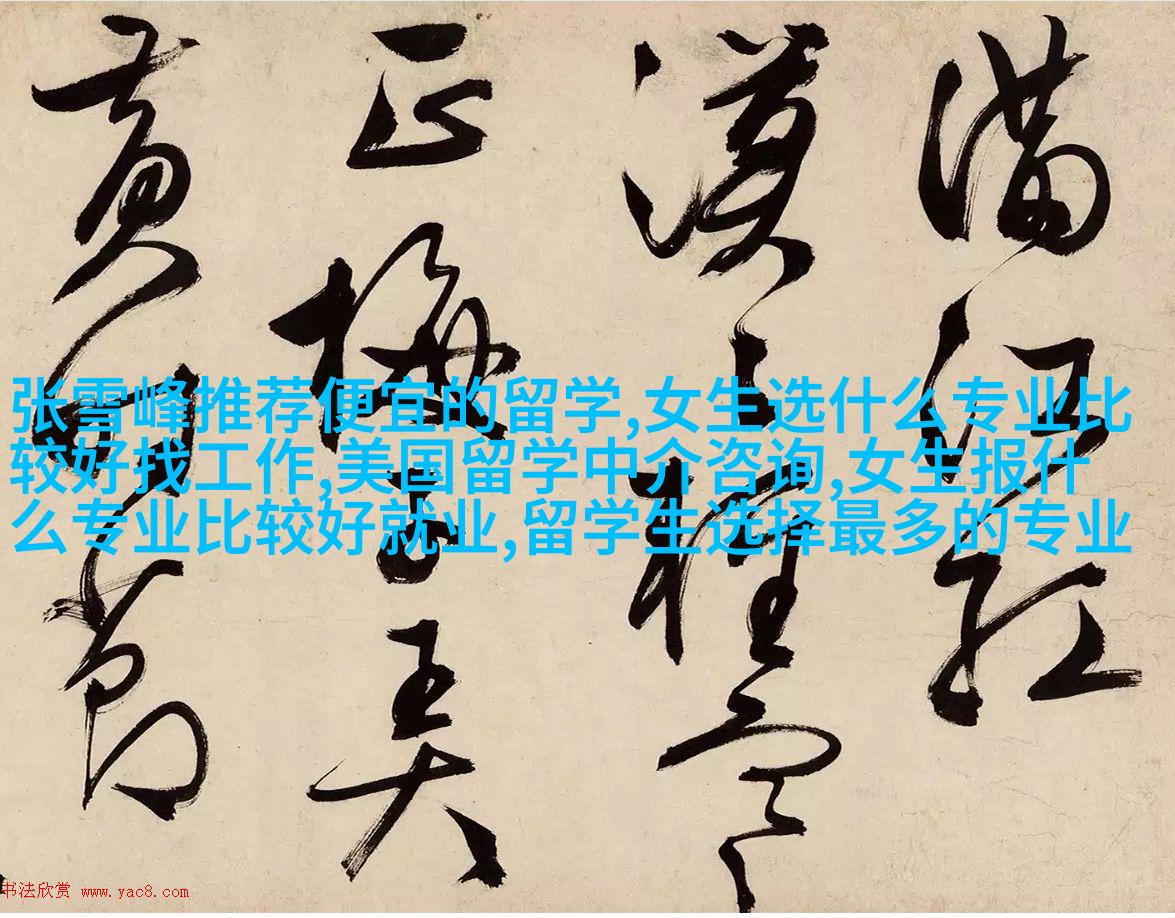 滿江紅
漠々輕寒
正梅子弄
黃時節
张雪峰推荐便宜的留学,女生选什么专业比
较好找工作,美国留学中介咨询,女生报什
么专业比较好就业,留学生选择最多的专业
书法欣赏 www.yac8.com